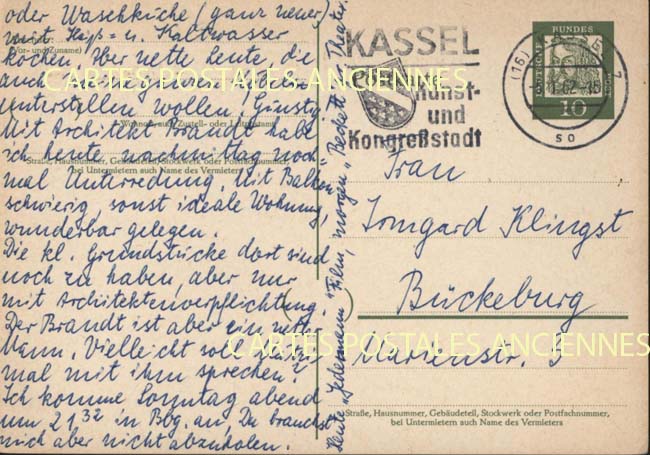 oder Waschküche (ganz neuer)
mit Heiß- u. Kaltwasser
kochen. Aber nette heute, die
auch unterstellen wollen. Günstig.
Mit Architekt Brandt habe
ich heute nachmittag noch
mal Unterredung. Mit Balkon
schwierig, sonst ideale Wohnung,
wunderbar gelegen.
Die kl. Grundstücke dort sind
noch zu haben, aber nur
mit Architektenverpflichtung.
Der Brandt ist aber ein netter
Mann. Vielleicht soll
mal mit ihm sprechen?
Ich komme Sonntag abend
um 21 32 in Bbg. an. Du brauchst
mich aber nicht abzuholen.
Heute "Jedermann" Film, morgen "Beckett" Theater.
(Vor- und Zuname)
Straße, Hausnummer, Gebäudeteil, Stockwerk oder Postfachnummer,
bei Untermietern auch Name des Vermieters
KASSEL
Kunst-
und
Kongreßstadt
(16) KASSEL 7
62-15
so
DEUTSCHE BUNDESPOST
10
Frau
Irmgard Klingst
Bückeburg
Marienstr. 5
Straße, Hausnummer, Gebäudeteil, Stockwerk oder Postfachnummer,
bei Untermietern auch Name des Vermieters
CARTES POSTALES ANCIENNES
CARTES POSTALES ANCIENNES